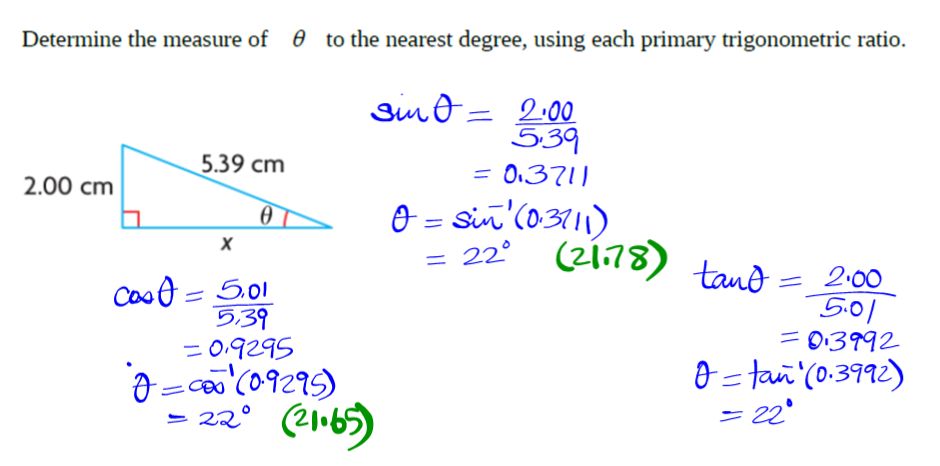 Determine the measure of θ to the nearest degree, using each primary trigonometric ratio.
sinθ = 2.00
5.39
= 0.3711
θ = sin⁻¹(0.3711)
= 22° (21.78)
5.39 cm
2.00 cm
θ
x
cosθ = 5.01
5.39
= 0.9295
θ = cos⁻¹(0.9295)
= 22° (21.65)
tanθ = 2.00
5.01
= 0.3992
θ = tan⁻¹(0.3992)
= 22°